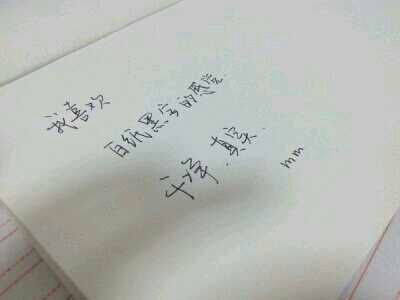 我喜欢
白纸黑字的感觉.
干净.真实.
mm